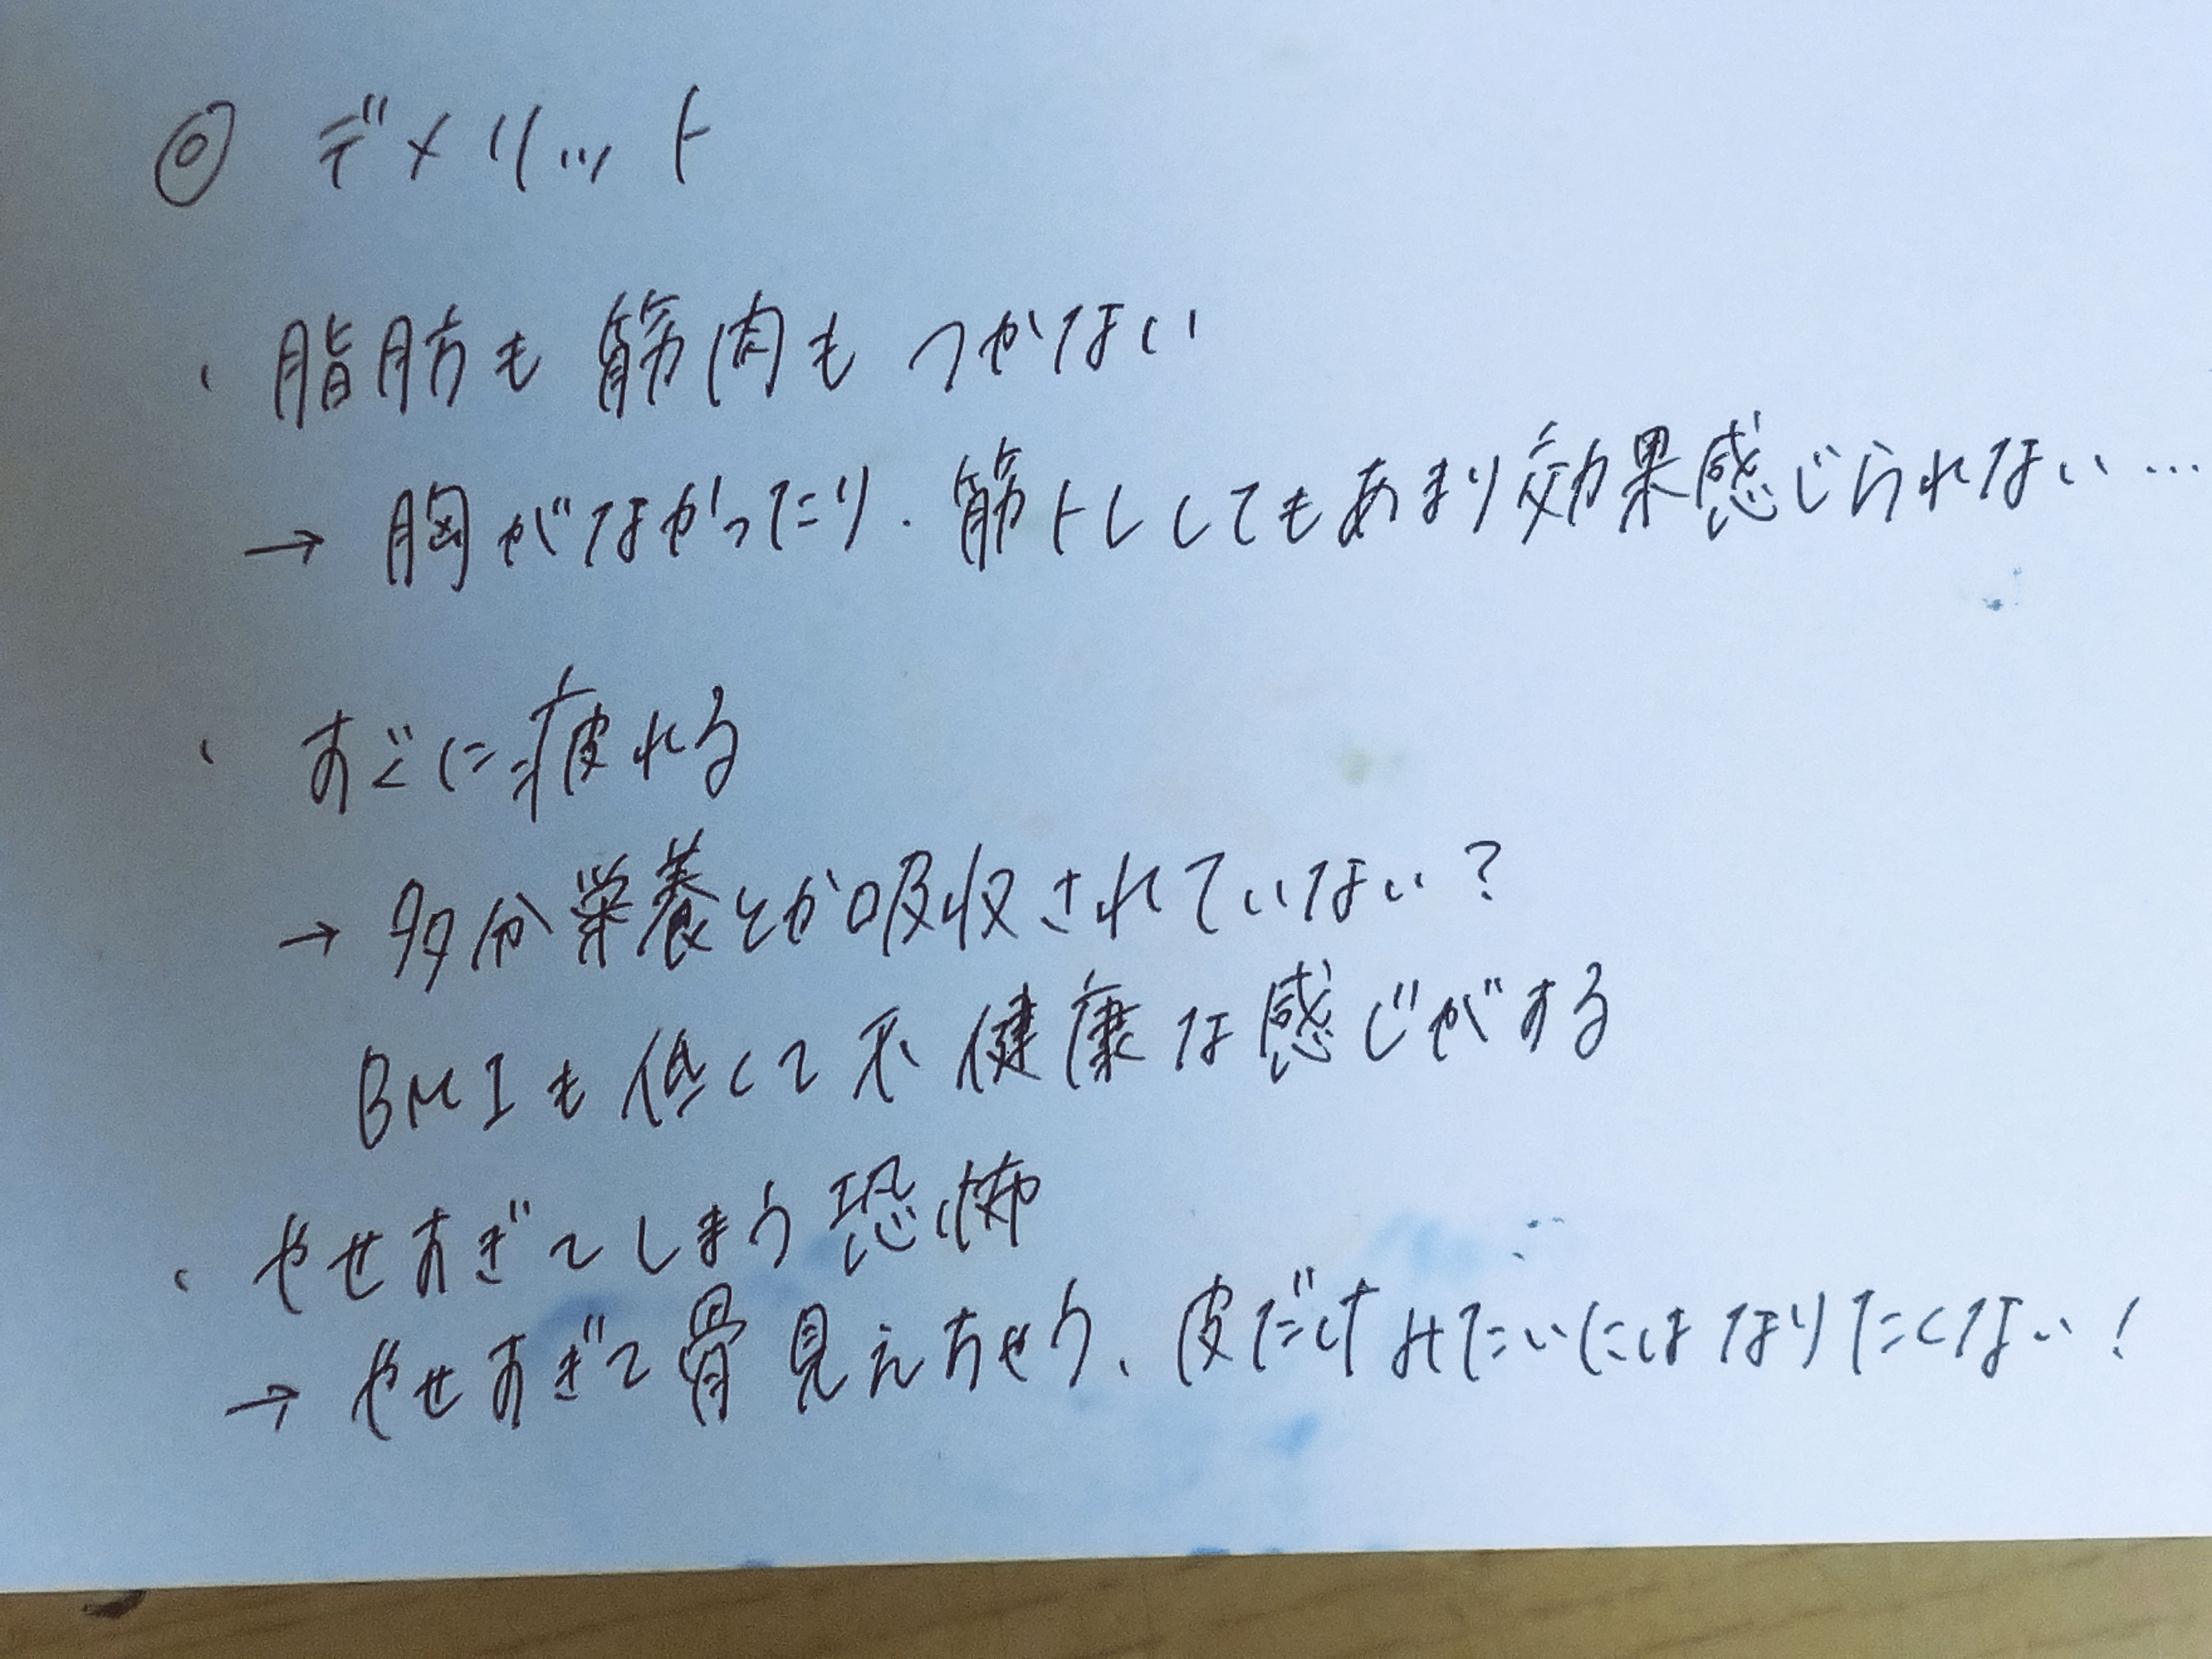 ◎ デメリット
・脂肪も筋肉もつかない
→ 胸がなかったり、筋トレしてもあまり効果感じられない…
・すぐに疲れる
→ 多分栄養とか吸収されていない?
BMIも低くて不健康な感じがする
・やせすぎてしまう恐怖
→ やせすぎて骨見えちゃう、皮だけみたいにはなりたくない!